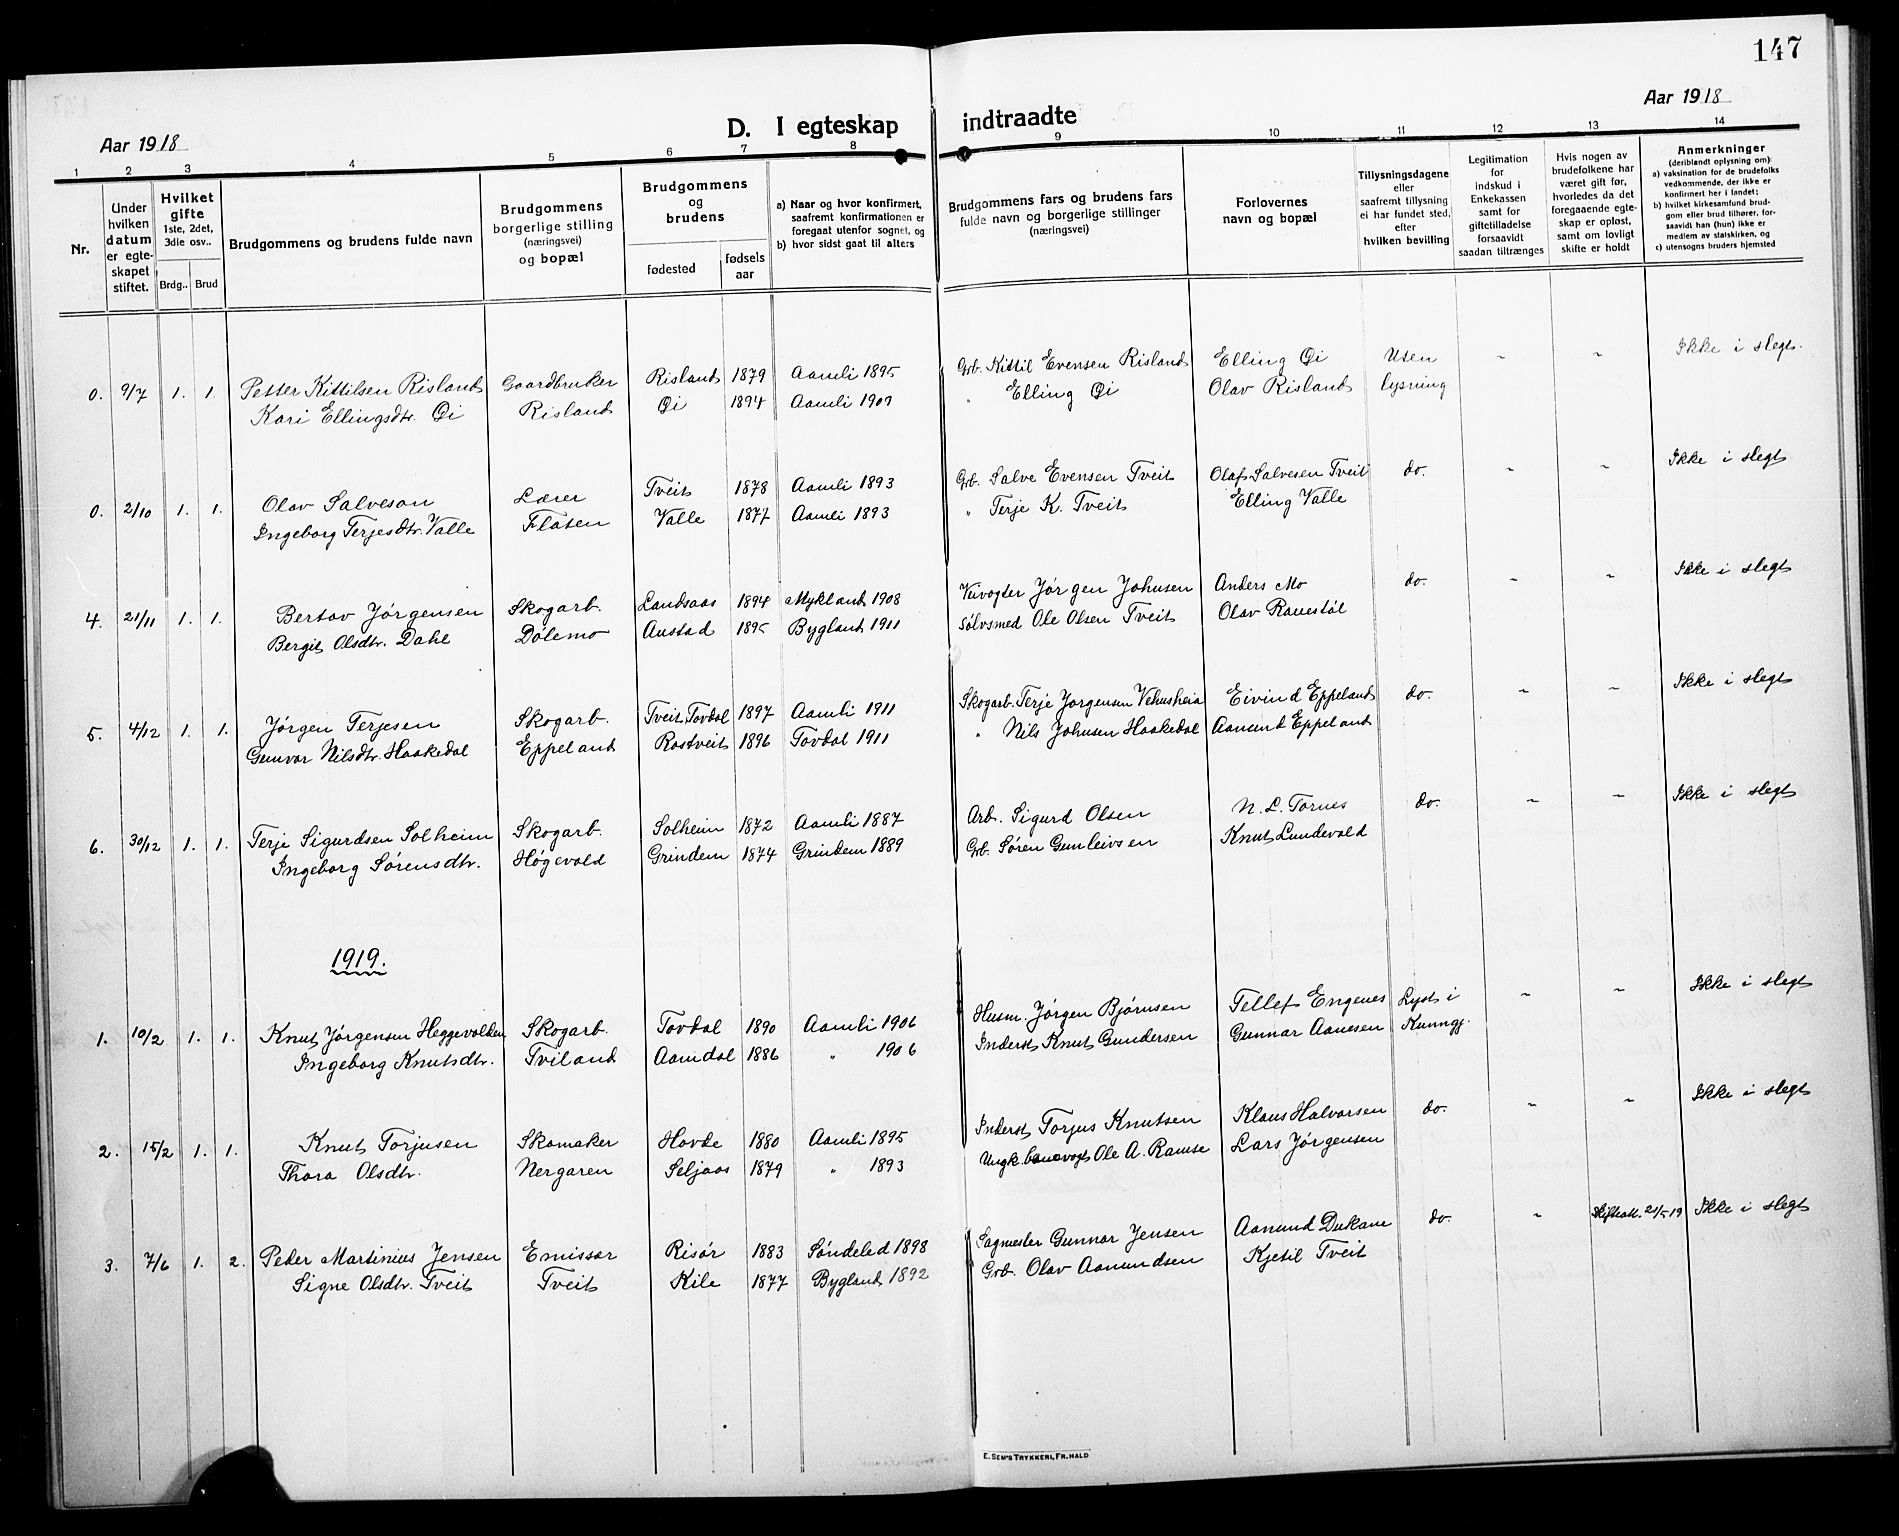 147
Aar 1918
D. I egteskap indtraadte
Aar 1918
1 2 3 4 5 6 7 8 9 10 11 12 13 14
Nr.
Under hvilken datum er egte-skapet stiftet.
Hvilket gifte 1ste, 2det, 3die osv..
Brdg.. Brud
Brudgommens og brudens fulde navn
Brudgommens borgerlige stilling (næringsvei) og bopæl
Brudgommens og brudens
fødested
fødsels aar
a) Naar og hvor konfirmert, saafremt konfirmationen er foregaat utenfor sognet, og
b) hvor sidst gaat til alters
Brudgommens fars og brudens fars fulde navn og borgerlige stillinger (næringsvei)
Forlovernes navn og bopæl
Tillysningsdagene eller saafremt tillysning ei har fundet sted, efter hvilken bevilling
Legitimation for indskud i Enkekassen samt for giftetilladelse forsaavidt saadan tiltrænges
Hvis nogen av brudefolkene har været gift før, hvorledes da det foregaaende egte-skap er opløst, samt om lovligt skifte er holdt
Anmerkninger (deriblandt oplysning om):
a) vaksination for de brudefolks vedkommende, der ikke er konfirmert her i landet;
b) hvilket kirkesamfund brud-gom eller brud tilhører, for-saavidt han (hun) ikke er medlem av statskirken, og
c) utensogns bruders hjemsted
0. 9/7 1. 1. Petter Kittilsen Risland Gaardbruker Risland 1879 Aamli 1895 Grb. Kittil Evensen Risland Elling Øi Uten " " Ikke i slegt.
Kari Ellingsdtr. Øi Risland Øi 1894 Aamli 1909 " Elling Øi Olav Risland lysning
0. 2/10 1. 1. Olav Salveson Lærer Tveit 1878 Aamli 1893 Grb. Salve Evensen Tveit Olaf Salvesen Tveit do. " " Ikke i slegt
Ingeborg Terjesdtr. Valle Flaten Valle 1877 Aamli 1893 " Terje K. Tveit Elling Valle
4. 21/11 1. 1. Bertav Jørgensen Skogarb. Landsaas 1894 Mykland 1908 Veivogter Jørgen Johnsen Anders Mo do. " " Ikke i slegt
Bergit Olsdtr. Dahl Dølemo Austad 1895 Bygland 1911 Sølvsmed Ole Olsen Tveit Olav Rauestøl
5. 4/12 1. 1. Jørgen Terjesen Skogarb. Tveit, Tovdal 1897 Aamli 1911 Skogarb. Terje Jørgensen Vehusheia Eivind Eppeland do. " " Ikke i slegt
Gunvor Nilsdtr. Haakedal Eppeland Rostveit 1896 Tovdal 1911 " Nils Johnsen Haakedal Aamund Eppeland
6. 30/12 1. 1. Terje Sigurdsen Solheim Skogarb. Solheim 1872 Aamli 1887 Arb. Sigurd Olsen N. L. Tornes do. " " Ikke i slegt
Ingeborg Sørensdtr. Høgevold Grindem 1874 Grindem 1889 Grb. Søren Gunleivsen Knut Lundevold
1919.
1. 10/2 1. 1. Knut Jørgensen Heggevolden Skogarb. Tovdal 1890 Aamli 1906 Husm. Jørgen Bjørnsen Tellef Engenes Lyst i " " Ikke i slegt
Ingeborg Knutsdtr. Tviland Aamdal 1886 " 1906 Inderst Knut Gundersen Gunnar Aanesen Kunngj.
2. 15/2 1. 1. Knut Torjusen Skomaker Hovde 1880 Aamli 1895 Inderst Torjus Knutsen Klaus Halvorsen do. " " Ikke i slegt
Thora Olsdtr. Nergaren Seljaas 1879 " 1893 Ungk. banevogt Ole A. Ramse Lars Jørgensen
3. 7/6 1. 2. Peder Martinius Jensen Emissær Risør 1883 Søndeled 1898 Sagmester Gunnar Jensen Aamund Dukane do. " Skifteatt. 21/5 19 Ikke i slegt
Signe Olsdtr. Tveit Tveit Kile 1877 Bygland 1892 Grb. Olav Aamundsen Kjetil Tveit
E. SEM'S TRYKKERI, FR.HALD